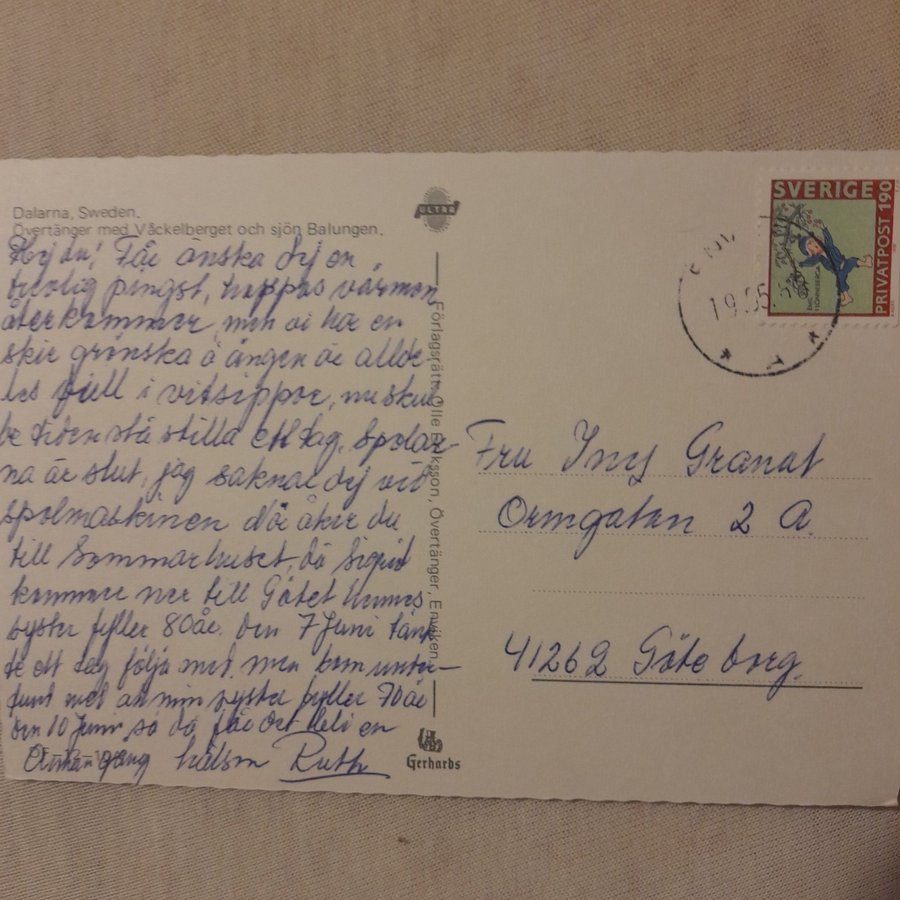 Dalarna, Sweden.
Övertänger med Våckelberget och sjön Balungen.
Hej du! Får önska dej en
trevlig pingst, hoppas värmen
återkommer, men vi har en
skir grönska å ängen är allde
les full i vitsippor, nu skul
le tiden stå stilla ett tag, Spolar-
na är slut, jag saknar dej vid
spolmaskinen När åker du
till Sommarhuset, då Sigrid
kommer ner till Götet hennes
syster fyller 80år. den 7 Juni tänk
te ett tag följa med, men kom under-
fund med att min syster fyller 70 år
den 10 Juni, så då får det bli en
annan gång hälsn Ruth
ULTRA
Förlagsrätt: Olle Eriksson, Övertänger, Enviken.
Gerhards
SVERIGE 1.90
PRIVATPOST
EMIL I LÖNNEBERGA
19.05
Fru Inez Granat
Ormgatan 2 A.
41262 Göteborg.